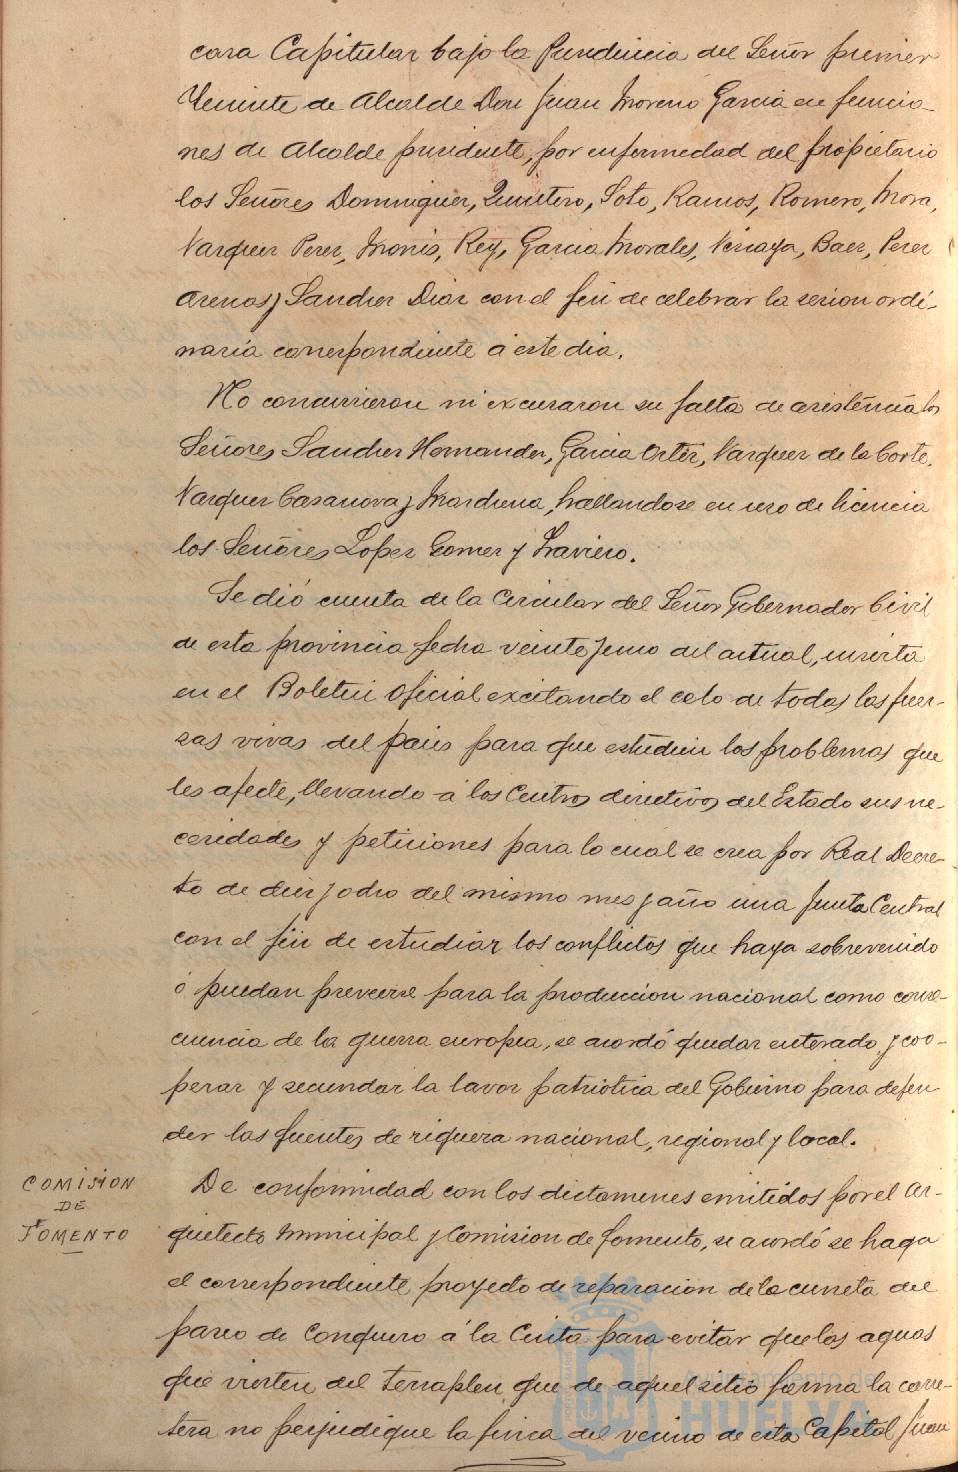 casa Capitular bajo la Presidencia del Señor primer
Teniente de Alcalde Don Juan Moreno Garcia en funcio-
nes de Alcalde presidente, por enfermedad del propietario
los Señores Dominguez, Quintero, Soto, Ramos, Romero, Mora,
Vazquez Perez, Monis, Rey, Garcia Morales, Vizcaya, Baez, Perez
Arenas y Sanchez Diaz con el fin de celebrar la sesion ordi-
naria correspondiente á este dia.
No concurrieron ni excusaron su falta de asistencia los
Señores Sanchez Hernandez, Garcia Ortiz, Vazquez de la Corte,
Vazquez Casanova y Mardrena, hallandose en uso de licencia
los Señores Lopez Gomez y Traviero.
Se dió cuenta de la Circular del Señor Gobernador Civil
de esta provincia fecha veinte y uno del actual, inserta
en el Boletin oficial excitando el celo de todas las fuer-
zas vivas del pais para que estudien los problemas que
les afecte, llevando á los Centros directivos del Estado sus ne-
cesidades y peticiones para lo cual se crea por Real Decre-
to de diez y ocho del mismo mes y año una Junta Central
con el fin de estudiar los conflictos que haya sobrevenido
ó puedan preverse para la produccion nacional como conse-
cuencia de la guerra europea, se acordó quedar enterado y coo-
perar y secundar la lavor patriotica del Gobierno para defen-
der las fuentes de riqueza nacional, regional y local.
COMISION
DE
FOMENTO
De conformidad con los dictamenes emitidos por el Ar-
quitecto Municipal y Comision de fomento, se acordó se haga
el correspondiente proyecto de reparacion de la cuneta del
paseo de Conquero á la Cinta para evitar que las aguas
que vierten del terraplen que de aquel sitio forma la carre-
tera no perjudique la finca del vecino de esta Capital Juan
Ayuntamiento de
HUELVA